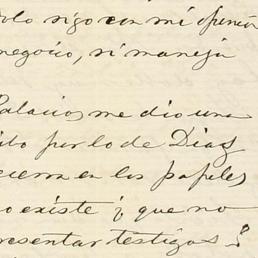 sigo con mi opinión
negocio, si maneja
Palacios me dio una
por lo de Diaz
en los papeles
o existe y que no
presentar testigos?